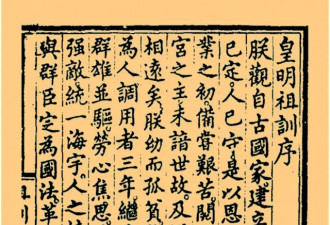 皇明祖訓序
朕觀自古國家建立
已定人已守是以恩
業之初備嘗艱苦閱
宮之主未諳世故及
相遠矣朕幼而孤貧
為人調用者三年繼
群雄並驅勞心焦思
強敵統一海宇人之
與群臣定為國法革